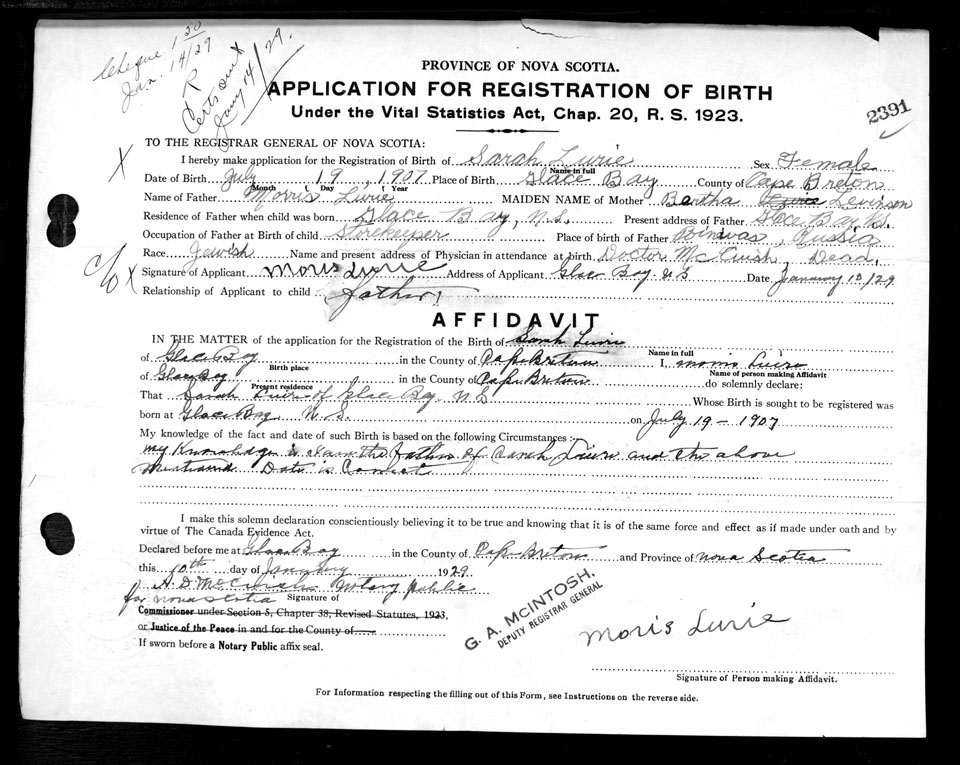 Cheque 1 20
Jan. 14/29
R
Certs sent
Jany 14/29.
PROVINCE OF NOVA SCOTIA.
APPLICATION FOR REGISTRATION OF BIRTH
Under the Vital Statistics Act, Chap. 20, R. S. 1923.
2391
TO THE REGISTRAR GENERAL OF NOVA SCOTIA:
X
I hereby make application for the Registration of Birth of Sarah Lurie Sex Female
Name in full
Date of Birth July 19, 1907 Place of Birth Glace Bay County of Cape Breton
Month Day Year
Name of Father Morris Lurie MAIDEN NAME of Mother Bertha Levinson
Residence of Father when child was born Glace Bay, N.S. Present address of Father Glace Bay, N.S.
Occupation of Father at Birth of child Storekeeper Place of birth of Father Russia
Race Jewish Name and present address of Physician in attendance at birth Doctor McCuish, Dead,
c/o X Signature of Applicant Moris Lurie Address of Applicant Glace Bay N S Date January 10/29
Relationship of Applicant to child father
AFFIDAVIT
IN THE MATTER of the application for the Registration of the Birth of Sarah Lurie
Name in full
of Glace Bay in the County of Cape Breton I, Morris Lurie
Birth place Name of person making Affidavit
of Glace Bay in the County of Cape Breton do solemnly declare:
Present residence
That Sarah Lurie of Glace Bay N.S. Whose Birth is sought to be registered was
born at Glace Bay N. S. on July 19 - 1907
My knowledge of the fact and date of such Birth is based on the following Circumstances:
my Knowledge is I am the father of Sarah Lurie and the above
mentioned Date is Correct
I make this solemn declaration conscientiously believing it to be true and knowing that it is of the same force and effect as if made under oath and by
virtue of The Canada Evidence Act.
Declared before me at Glace Bay in the County of Cape Breton and Province of Nova Scotia
this 10th day of January 1929
A. D. McCuish Notary Public
for Nova Scotia Signature of
Commissioner under Section 5, Chapter 38, Revised Statutes, 1923,
or Justice of the Peace in and for the County of
If sworn before a Notary Public affix seal.
G. A. MCINTOSH,
DEPUTY REGISTRAR GENERAL
Moris Lurie
Signature of Person making Affidavit.
For Information respecting the filling out of this Form, see Instructions on the reverse side.